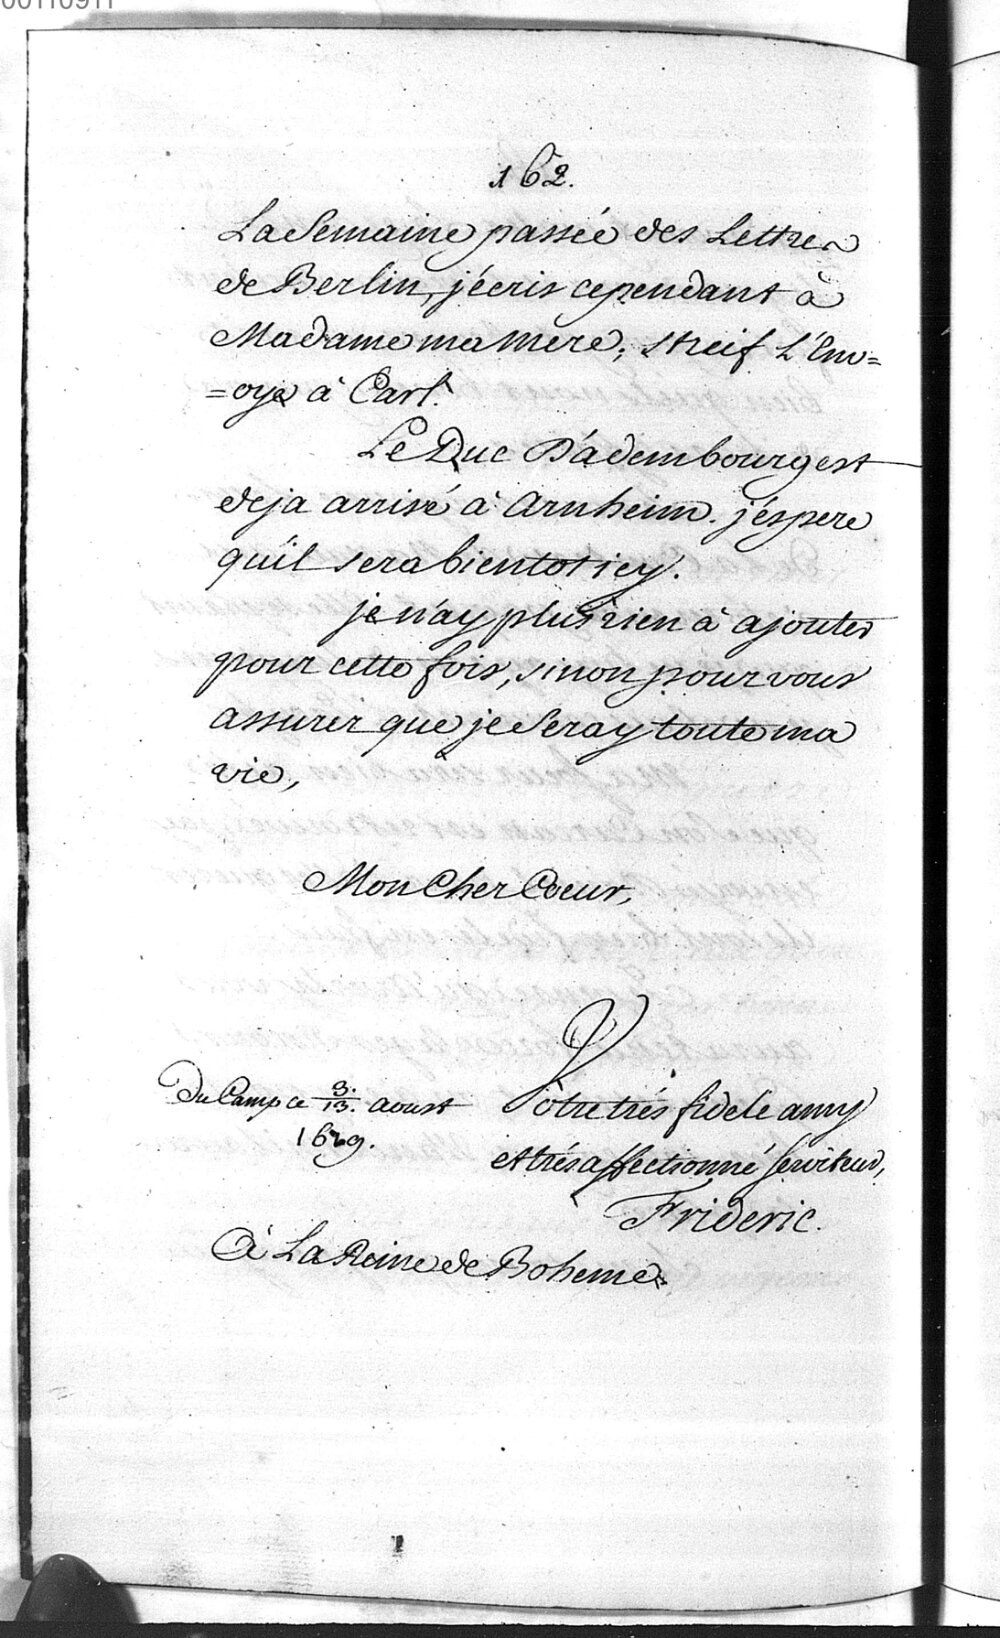 00110911
162.
La Semaine passée des Lettres
de Berlin, j'écris cependant à
Madame ma Mere; streif L'Env=
=oye à Carl.
Le Duc D'adembourg est
deja arrivé à Arnheim. j'éspere
qu'il sera bientot icy.
je n'ay plus rien à ajouter
pour cette fois, sinon pour vous
assurer que je Seray toute ma
vie,
Mon Cher Coeur,
Votre trés fidele amy
Du Camp ce 3./13. aoust
1629.
et trés affectionné serviteur,
Frideric.
à La Reine de Boheme.